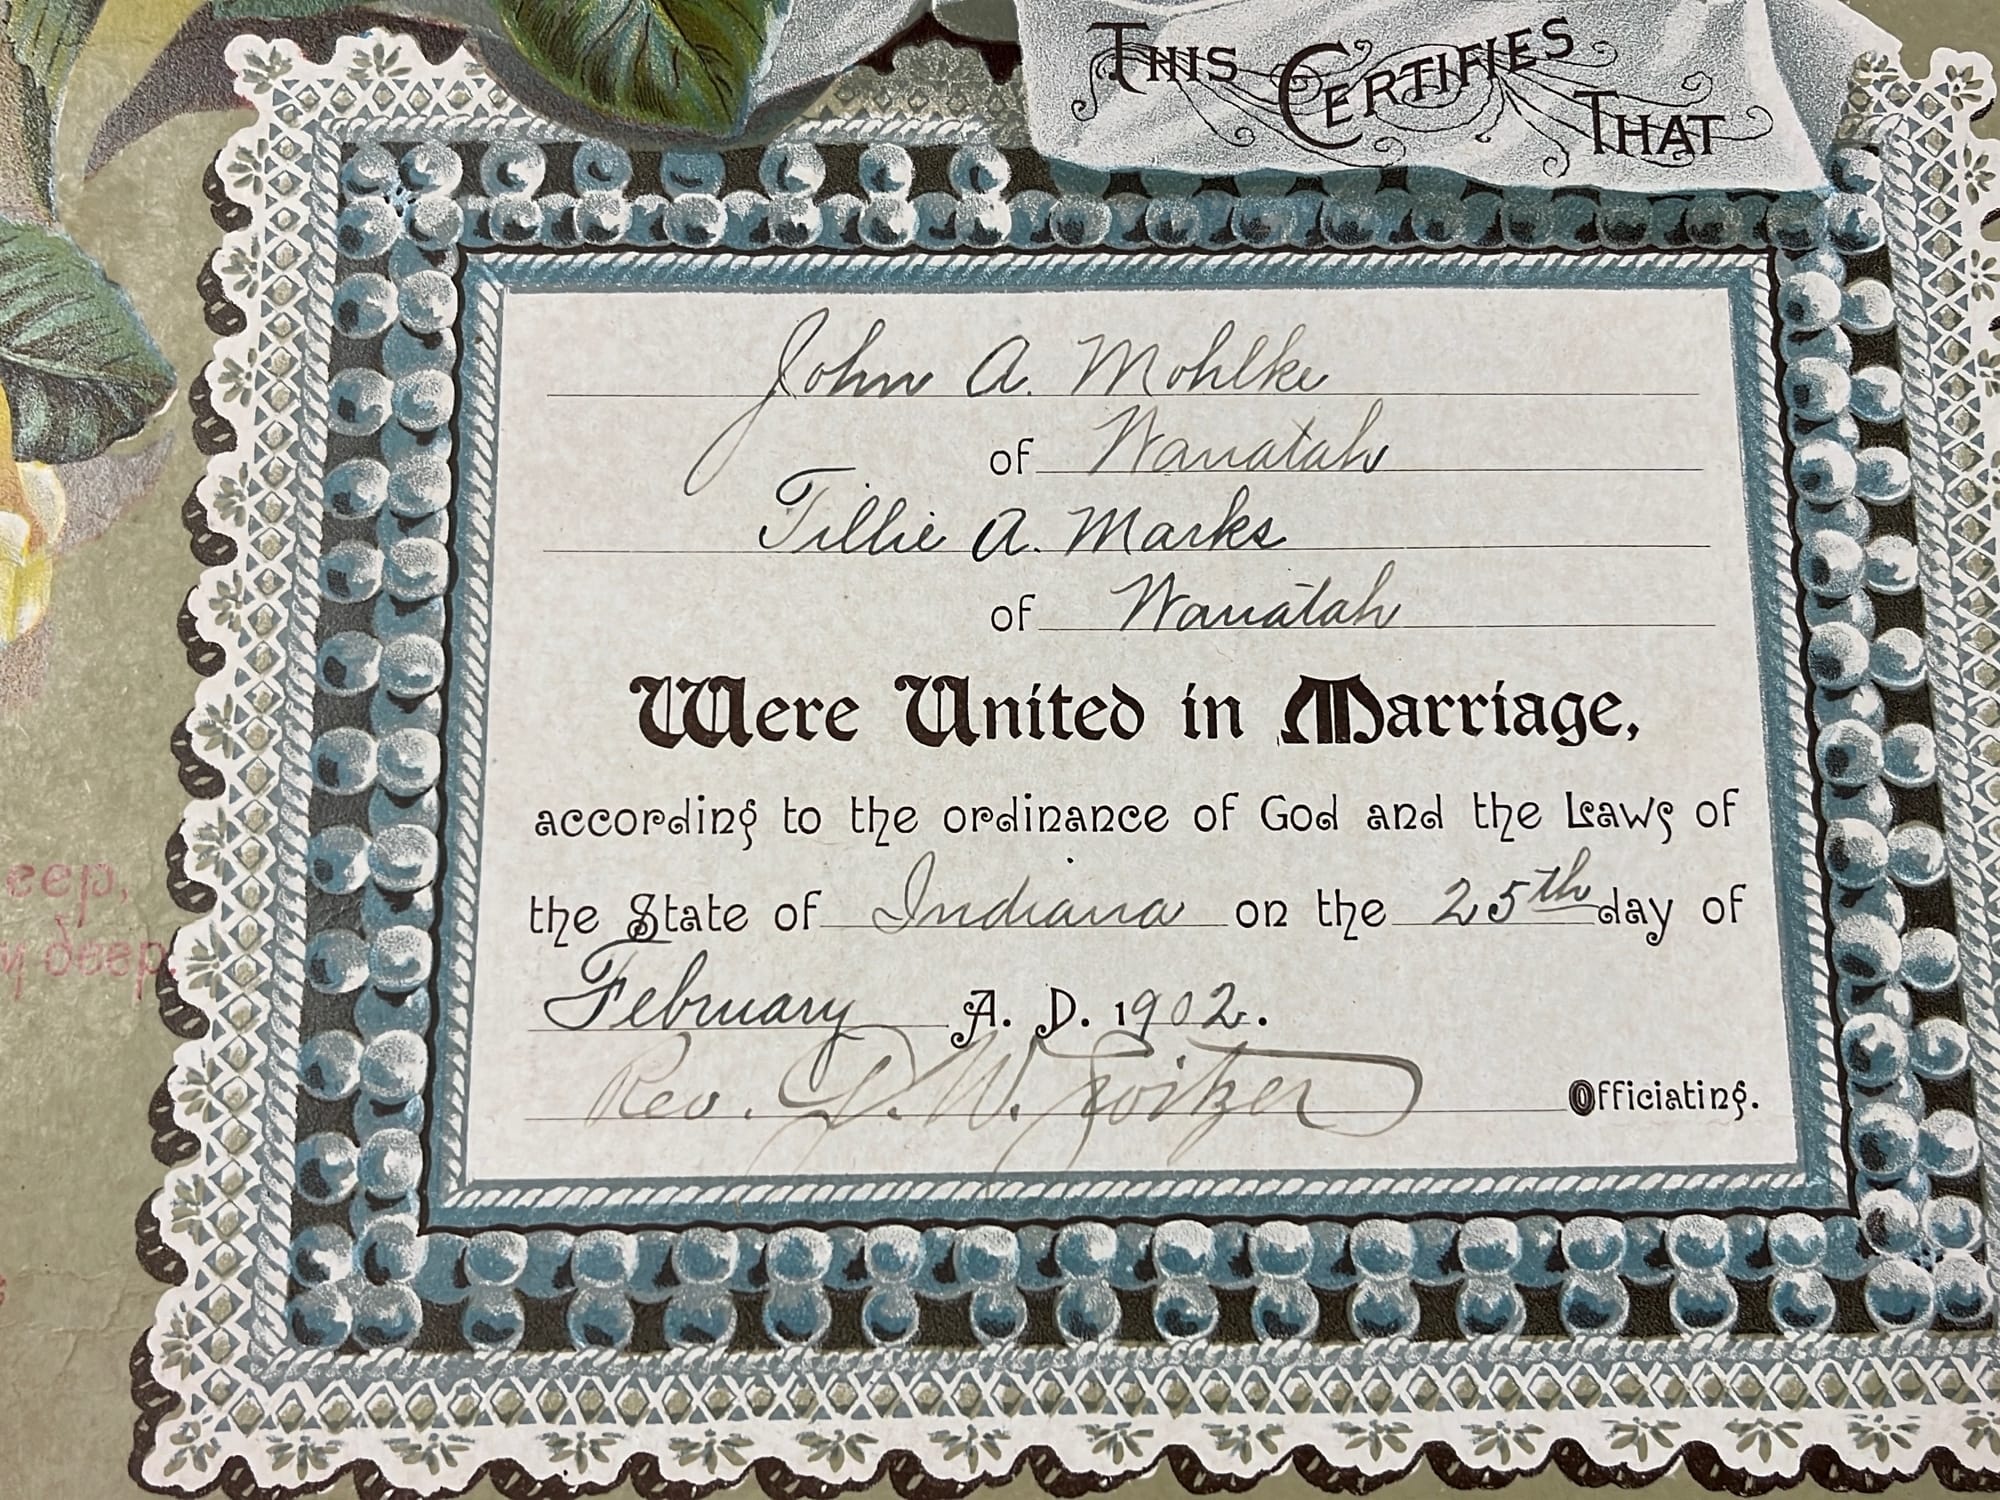 This Certifies That
John A. Mohlke
of Wanatah
Tillie A. Marks
of Wanatah
Were United in Marriage,
according to the ordinance of God and the Laws of
the State of Indiana on the 25th day of
February A. D. 1902.
Rev. W. Officiating.
eep,
deep.